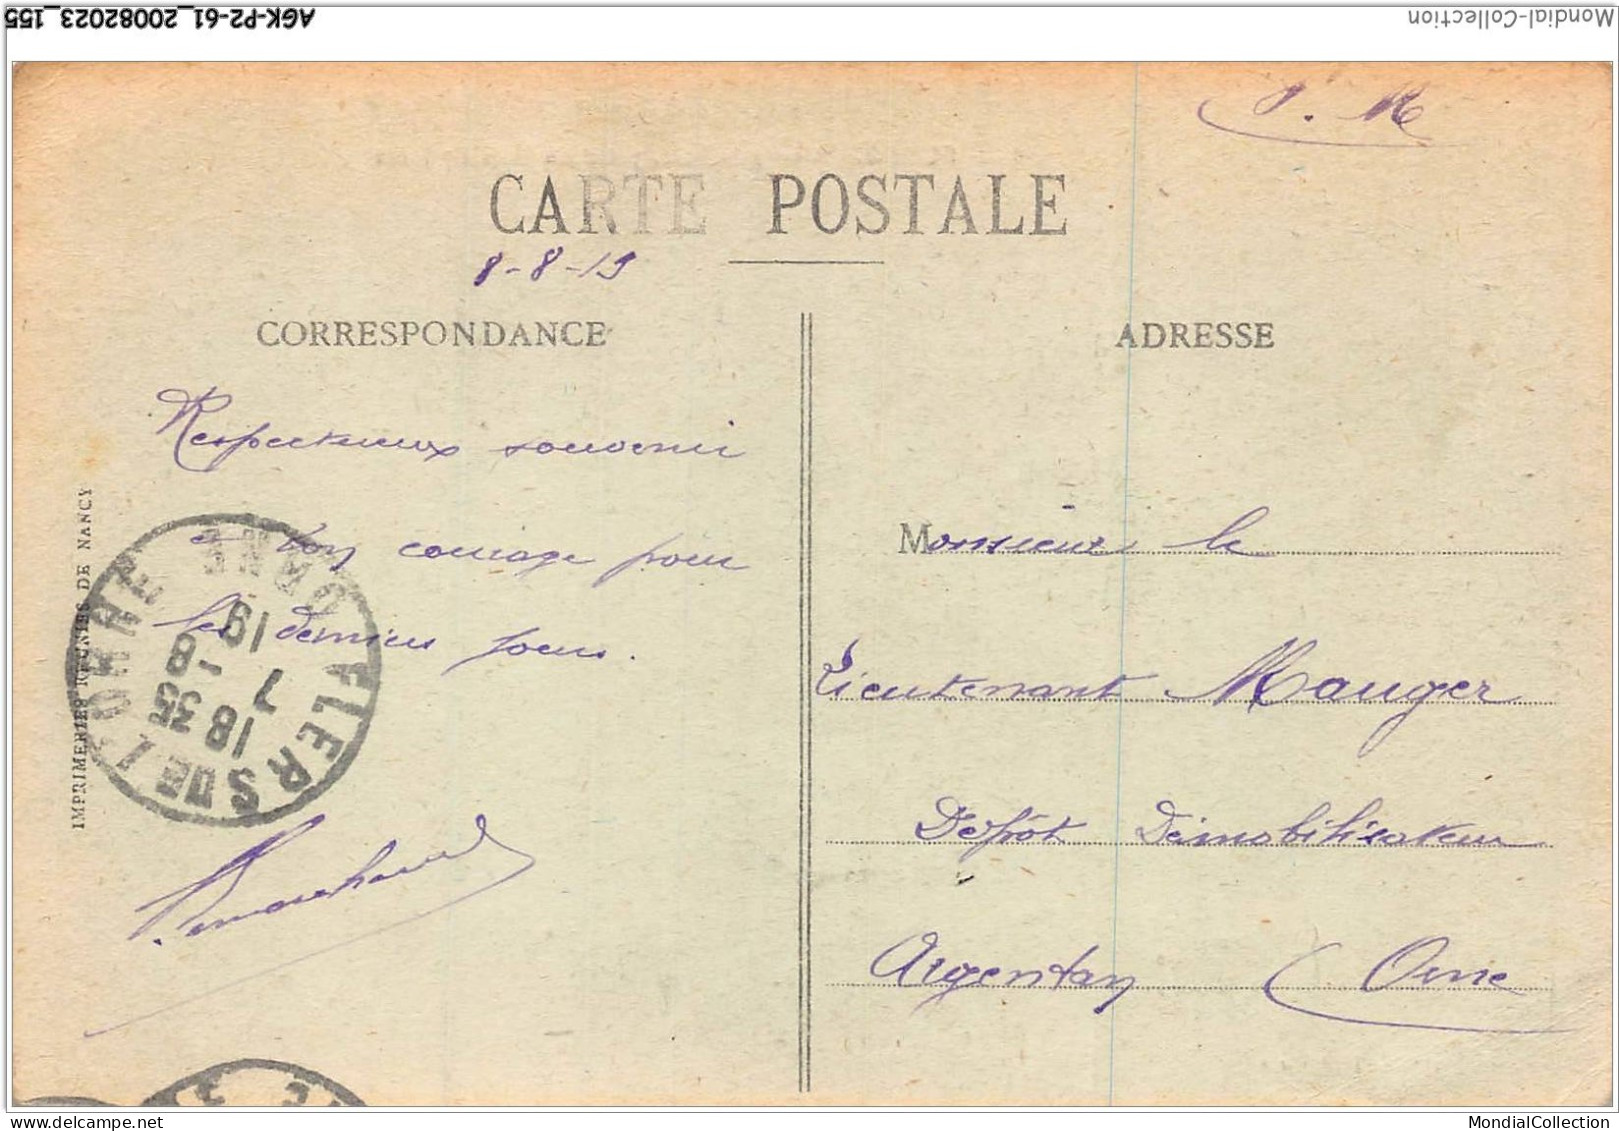 AGK-P2-61_20082023_155
Mondial-Collection
CARTE POSTALE
8-8-19
CORRESPONDANCE
ADRESSE
Respectueux souvenir
et bon courage pour
les derniers jours.
Monsieur le
Lieutenant Mauger
Dépôt Démobilisateur
Argentan (Orne
IMPRIMERIES RÉUNIES DE NANCY
FLERS DE L'ORNE ORNE
18 35
7 -8
19
MondialCollection